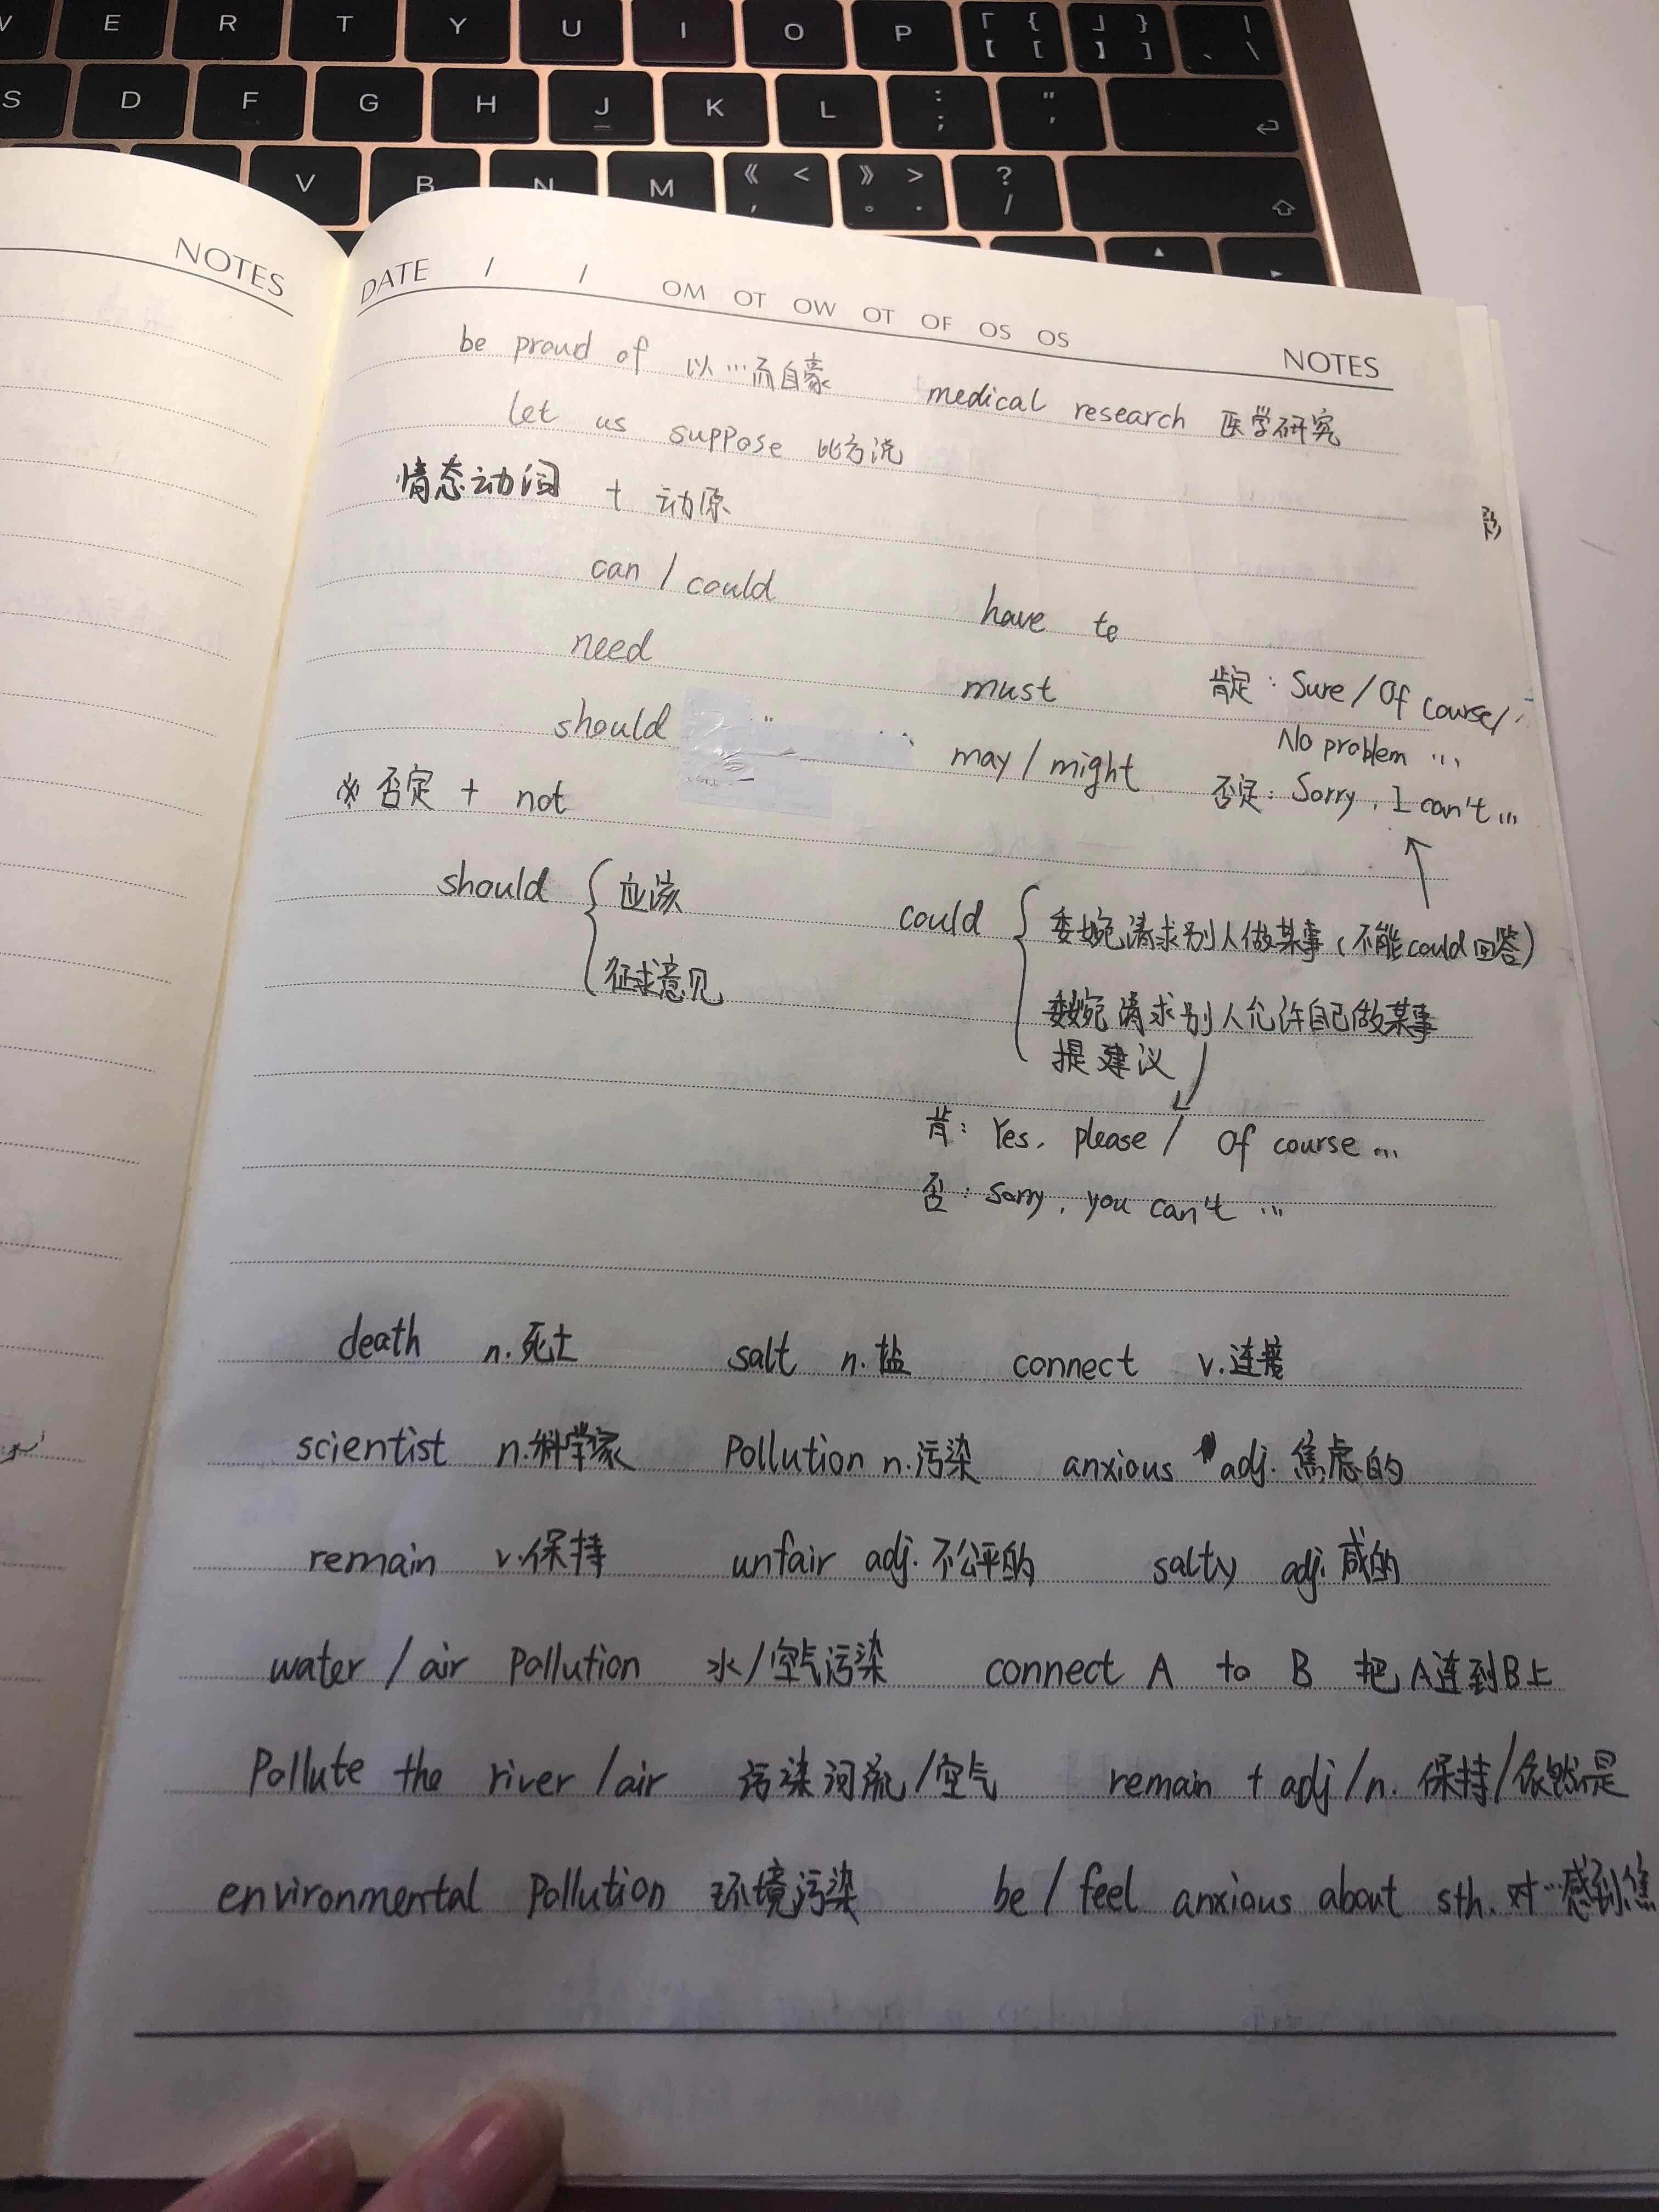 E R T Y U I O P 「 { 【 [ 」 } 】 ] | 、 \
S D F G H J K L : ; " '
V B N M 《 < , 》 > 。 . ? /
NOTES
DATE / / OM OT OW OT OF OS OS NOTES
be proud of 以…而自豪 medical research 医学研究
let us suppose 比方说
情态动词 + 动原
can / could have to
need must 肯定: Sure / Of course/
No problem ...
should may / might 否定: Sorry, I can't ...
※ 否定 + not
should { 应该 could { 委婉请求别人做某事 (不能could回答)
征求意见 委婉请求别人允许自己做某事
提建议
肯: Yes, please / Of course ...
否: Sorry, you can't ...
death n.死亡 salt n.盐 connect v.连接
scientist n.科学家 Pollution n.污染 anxious adj.焦虑的
remain v.保持 unfair adj.不公平的 salty adj.咸的
water / air Pollution 水/空气污染 connect A to B 把A连到B上
Pollute the river / air 污染河流/空气 remain + adj / n. 保持/依然是
environmental Pollution 环境污染 be / feel anxious about sth. 对…感到焦